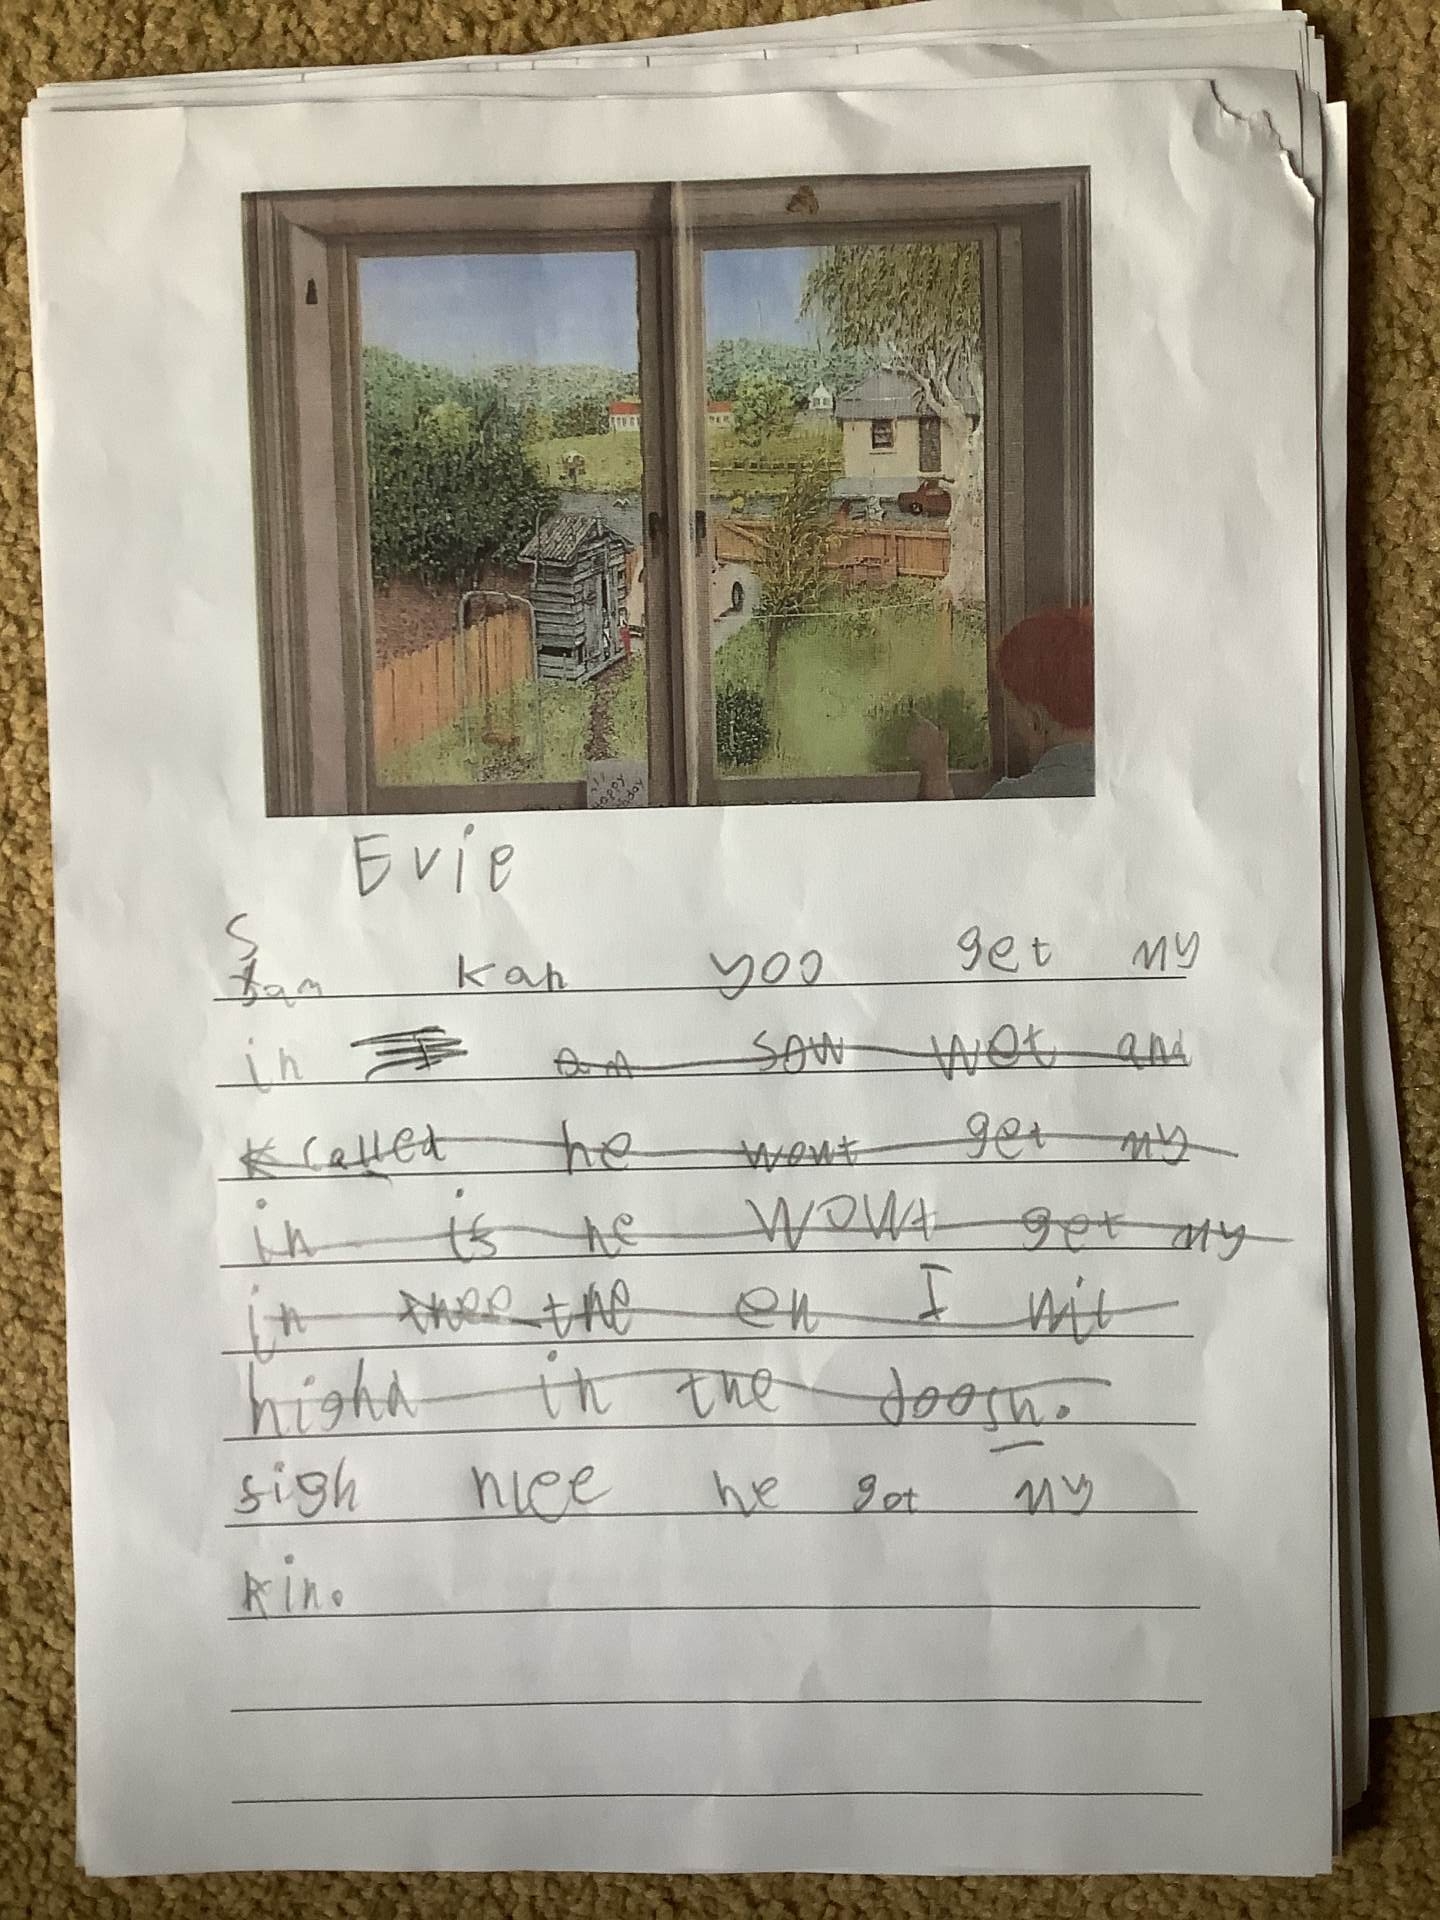 Happy
Evie
Sam kan yoo get my
in am sow wet and
k called he wont get my
in is he wont get my
in thee the en I wil
highd in the doosh.
sigh nice he got my
kin.